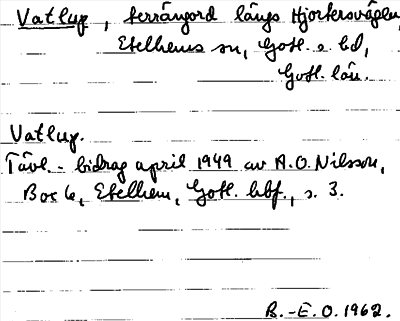 Vatlup, terrängord längs Hjortersvägen,
Etelhems sn, Gotl. s. hd,
Gotl. län.
Vatlup.
Tävl.-bidrag april 1949 av A.O. Nilsson,
Box 6, Etelhem, Gotl. hbf., s. 3.
B.-E.O. 1962.